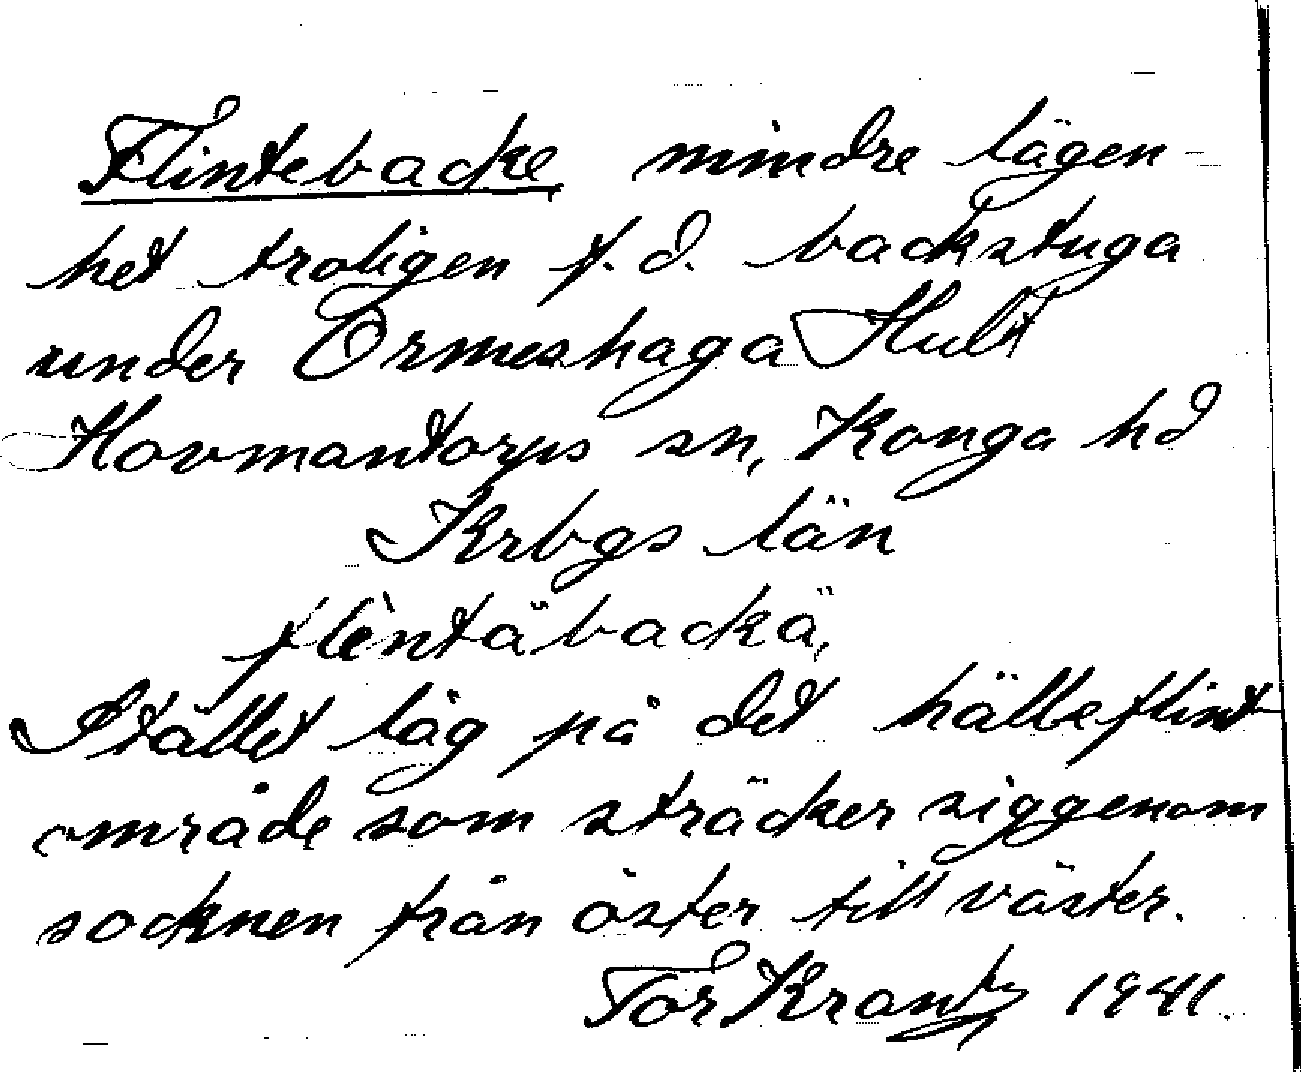 Flintebacke, mindre lägen-
het troligen f.d. backstuga
under Ormeshaga Hult
Hovmantorps sn, Konga hd
Krbgs län
flèntäbackä,
Stället låg på det hälleflint-
område som sträcker siggenom
socknen från öster till väster.
Tor Krantz 1941.